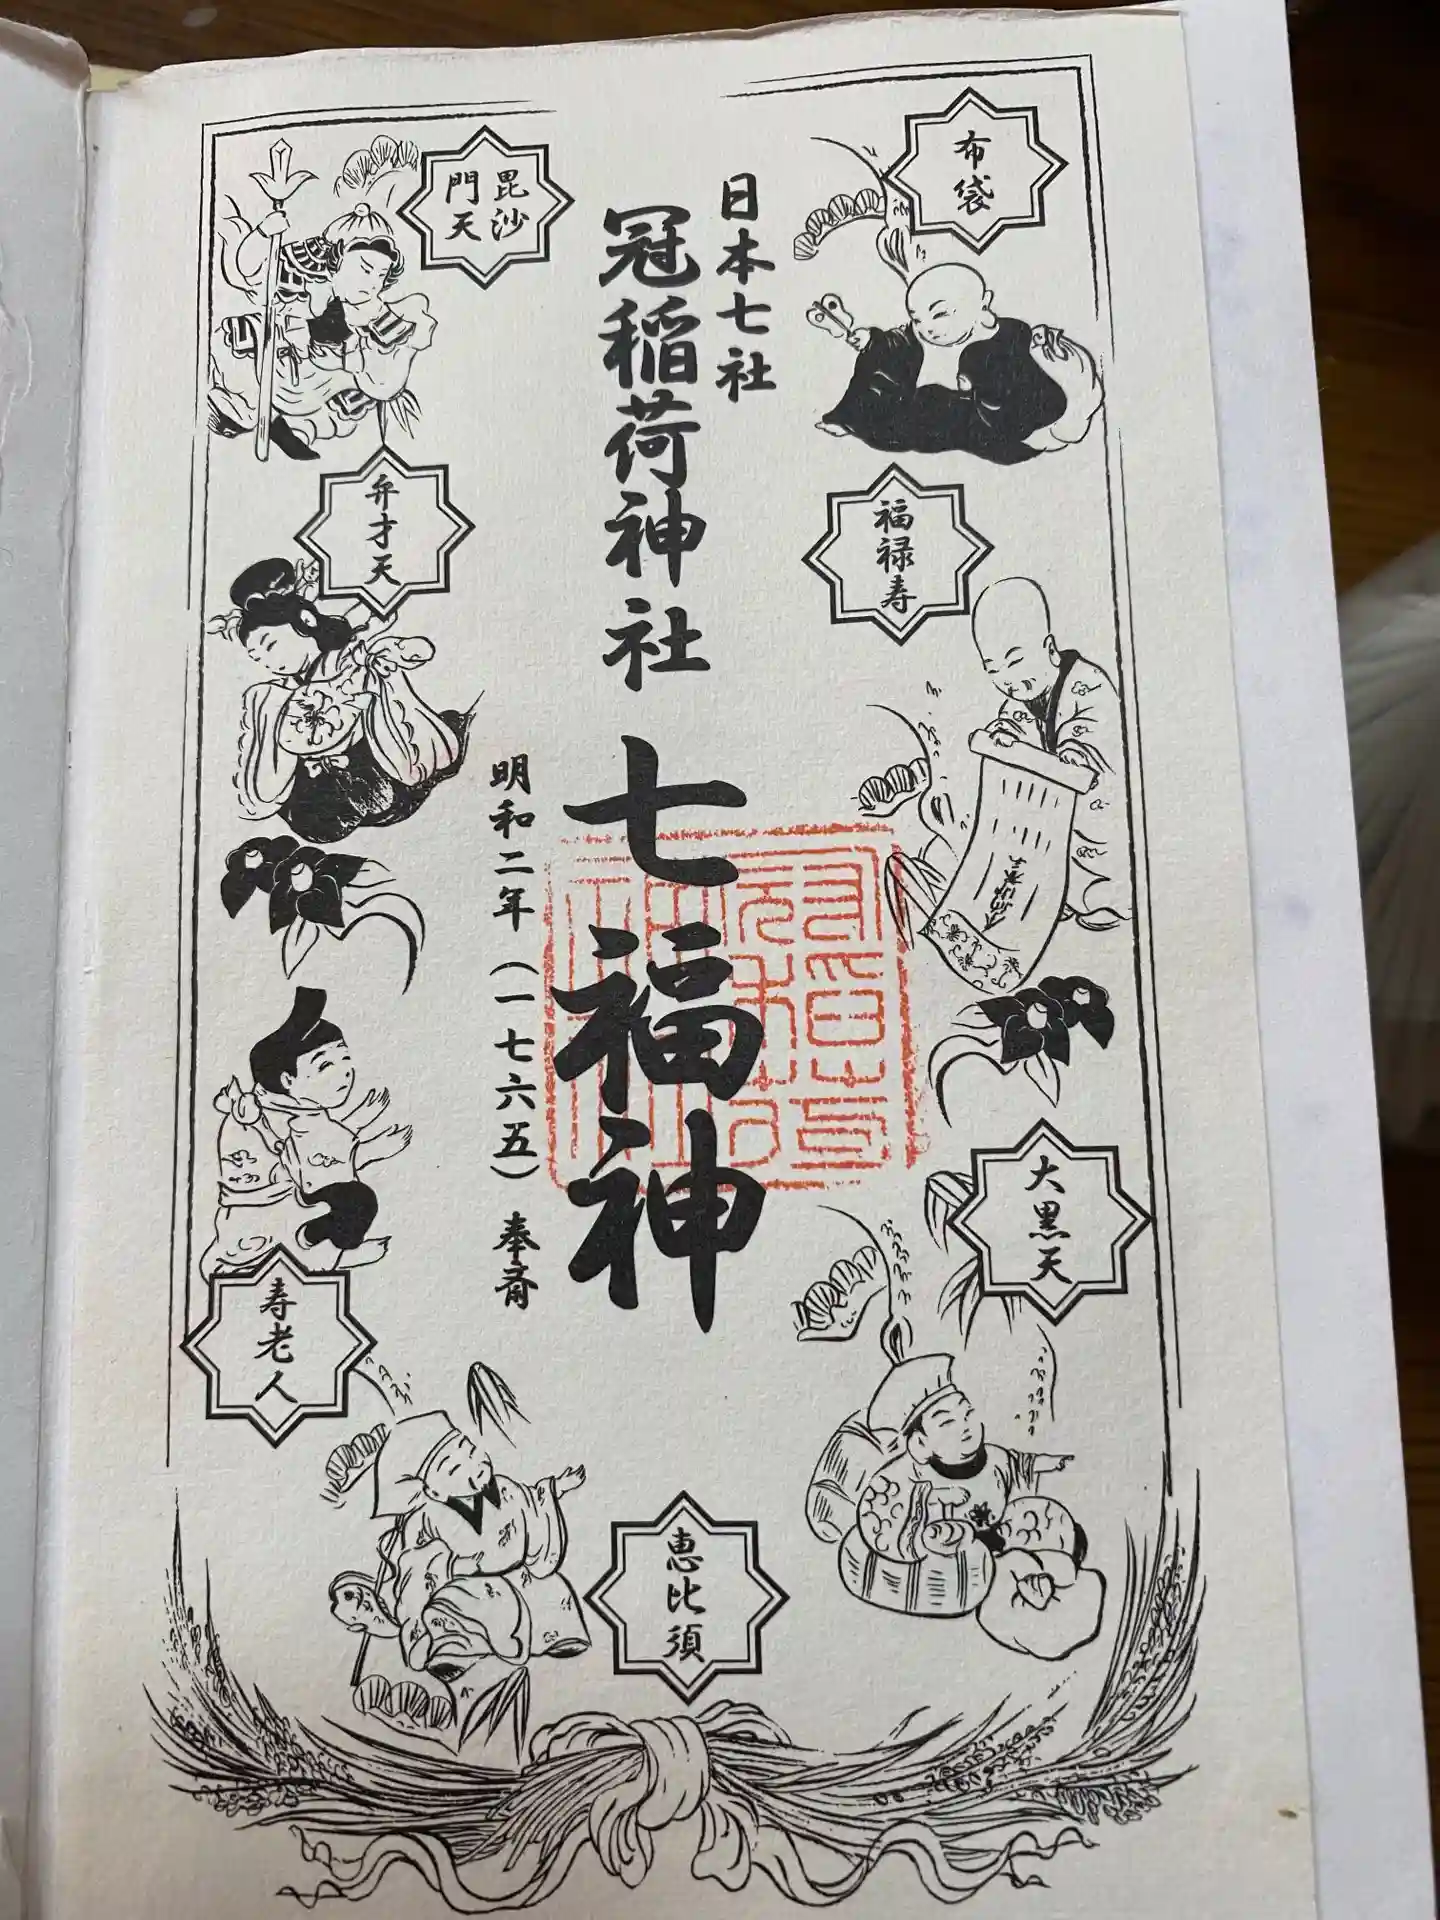 布袋
日本七社
冠稲荷神社 七福神
毘沙
門天
福禄寿
弁才天
明和二年（一七六五）奉斎
大黒天
寿老人
恵比須